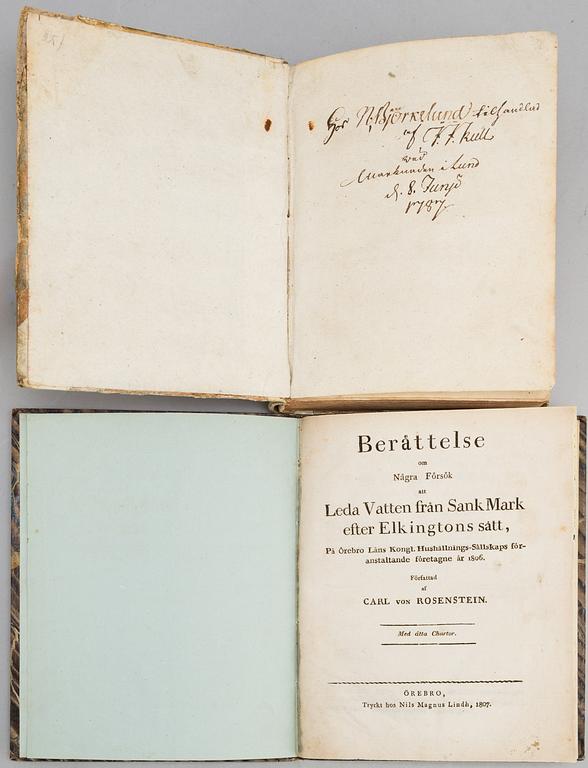 Hos N. Björkelund tilhandlad
af F. F. Kull
ved
Marknaden i Lund
d. 8. Junÿ
1787.
Beråttelse
om
Några Försök
att
Leda Vatten från Sank Mark
efter Elkingtons sått,
På Örebro Låns Kongl. Hushållnings-Sållskaps för-
anstaltande företagne år 1806.
Författad
af
CARL von ROSENSTEIN.
Med åtta Chartor.
ÖREBRO,
Tryckt hos Nils Magnus Lindh, 1807.